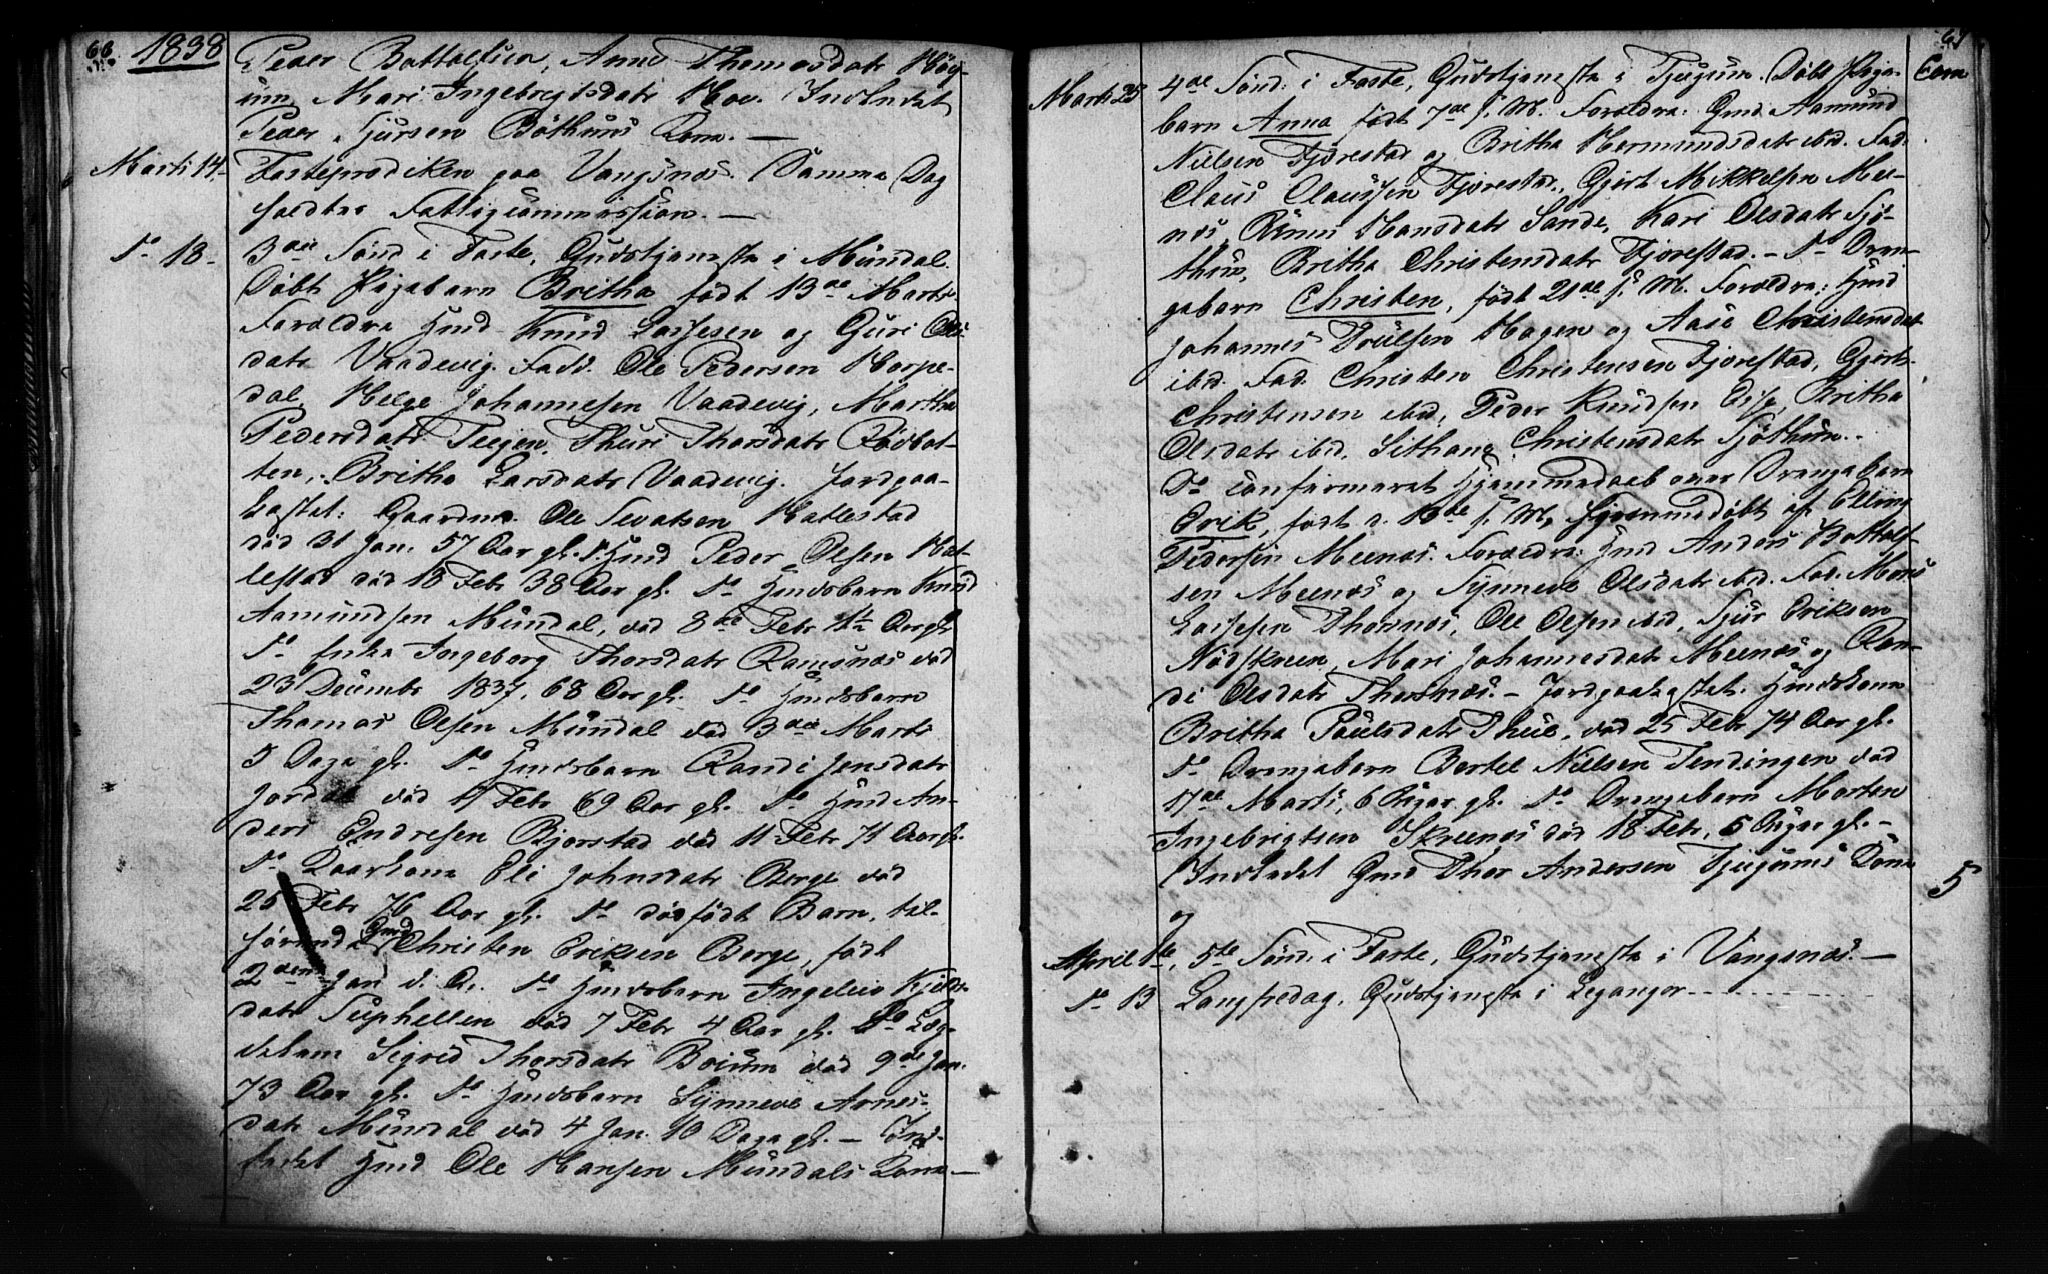 66 1838
Peder Battolfsen, Anne Thomasdatr Høy-
um, Mari Ingebrigtsdatr Hov. Indledet
Peder Sjursen Böthuns Kone. —
Marti 14. Fasteprædiken paa Vangsnæs. Samme Dag
holdtes Fattigcommission. —
Do 18. 3die Sönd. i Faste, Gudstjeneste i Mundal.
Döbt Pigebarn Britha født 13de Marts.
Forældre Hmd Knud Lassesen og Guri Ols-
datr Vaadevig. Fadd. Ole Pedersen Horpe-
dal, Helge Johannesen Vaadevig, Martha
Pedersdatr Teigen, Thuri Thorsdatr Rödbot-
ten, Britha Larsdatr Vaadevig. Jordpaa-
kastet: Gaardm. Ole Sevatsen Hatlestad
död 31 Jan. 57 Aar gl. Do Hmd Peder Olsen Hat-
lestad död 18 Febr 38 Aar gl. Do Hmdsbarn Knud
Aamundsen Mundal, död 8de Febr 1½ Aar gl.
Do Enke Ingeborg Thorsdatr Ramsnæs död
23 Decembr 1837, 68 Aar gl. Do Hmdsbarn
Thomas Olsen Mundal död 3die Marts
5 Dage gl. Do Hmdsbarn Randi Jensdatr
död 11 Febr 69 Aar gl. Do Hmd An-
ders Endresen Bjorstad död 11 Febr 71 Aar gl.
Do Kaarkone Eli Johnsdatr Berge död
25 Febr 76 Aar gl. Do dödfödt Barn, til-
hörende Gmd Christen Eriksen Berge, födt
2den Jan d. A. Do Hmdsbarn Ingeleiv Kjelds-
datr Suphellen död 7 Febr 4 Aar gl. Do Læg-
delem Sigrid Thorsdatr Boium död 9de Jan.
73 Aar gl. Do Hmdsbarn Synneve Arnes-
datr Mundal död 4 Jan. 10 Dage gl. — Ind-
ledet Hmd Ole Hansen Mundals Kone —
67
Marti 25 4de Sönd. i Faste, Gudstjeneste i Tjugum. Döbt Pige-
barn Anna födt 7de s. M. Forældre: Gmd Aamund
Nielsen Fjørestad og Britha Hermundsdatr ibid. Fad.
Claus Claussen Fjørestad, Gjert Mikkelsen Mee-
næs, Hansdatr Sande, Kari Olsdatr Sjö-
thun, Britha Christensdatr Fjørestad. — Do Dren-
gebarn Christen, födt 21de s. M. Forældre: Hmd
Johannes Trulsen Hagen og Aase Christensdatr
ibid. Fad. Christen Christensen Fjørestad, Gjert
Christensen ibid, Peder Knudsen Britha
Olsdatr ibid, Christensdatr Sjöthun.
Do confirmeret Hjemmedaab over Drengebarn
Erik, födt d. s. M, hjemmedöbt af Elling
Pedersen Meenæs. Forældre: Hmd Anders Bottolf-
sen Meenæs og Synneve Olsdatr ibid. Fad. Mons
Lassesen Thornæs, Ole Olsen ibid, Sjur Eriksen
Nödskreen, Mari Johannesdatr Meenæs og Ran-
di Olsdatr Thornæs. — Jordpaakastet: Hmdskone
Britha Paulsdatr Thue, död 25 Febr 74 Aar gl.
Do Drengebarn Bertel Nielsen Tendingen död
17de Marti, 6 Uger gl. Do Drengebarn Morten
Ingebrigtsen Skreenæs död 18 Febr, 5 Uger gl. —
Indledet Gmd Thor Andersen Tjugums Kone 5
og
April 1te, 5te Sönd. i Faste, Gudstjeneste i Vangsnæs. —
Do 13 Langfredag, Gudstjeneste i Leganger